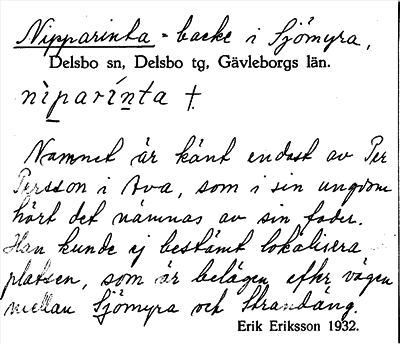 Nipparinta - backe i Sjömyra,
Delsbo sn, Delsbo tg, Gävleborgs län.
nìpaŕinta †.
Namnet är känt endast av Per
Persson i Ava, som i sin ungdom
hört det nämnas av sin fader.
Han kunde ej bestämt lokalisera
platsen, som är belägen efter vägen
mellan Sjömyra och Strandäng.
Erik Eriksson 1932.